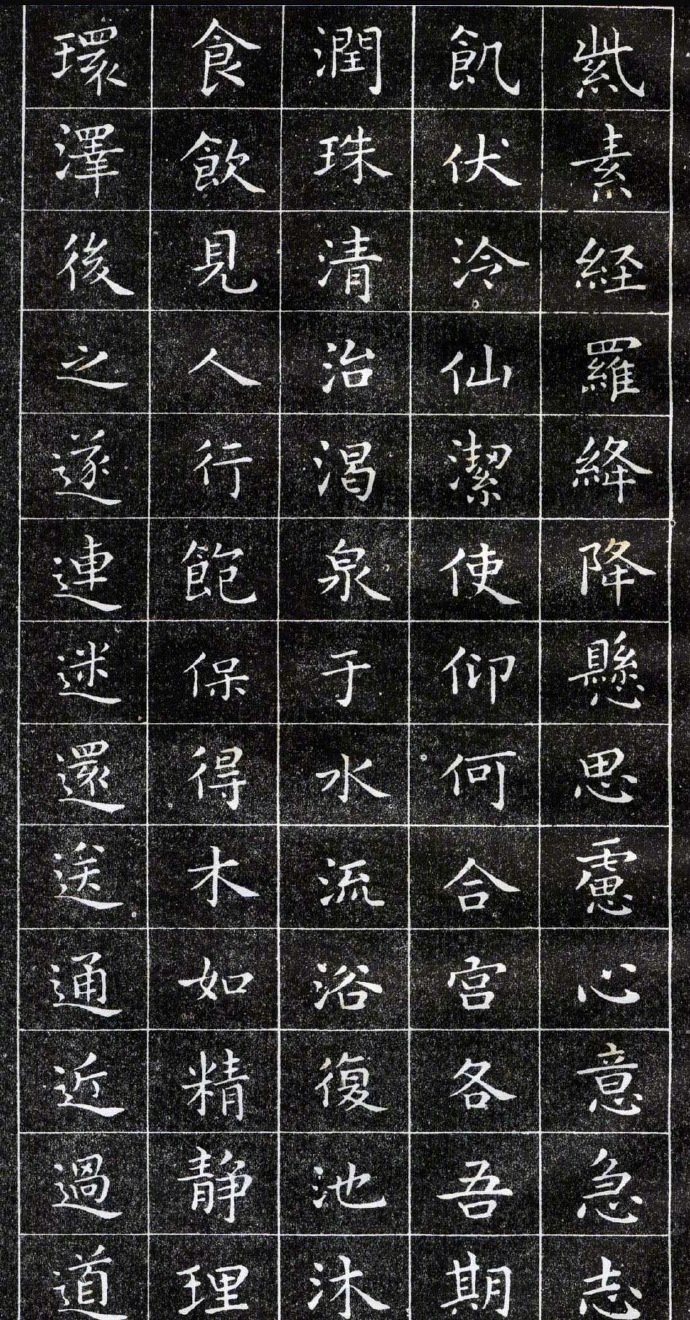 紫素経羅絳降懸思慮心意急志
飢伏泠仙潔使仰何合宮各吾期
潤珠清治渴泉于水流浴復池沐
食飲見人行飽保得木如精靜理
環澤後之遂連迷還送通近過道